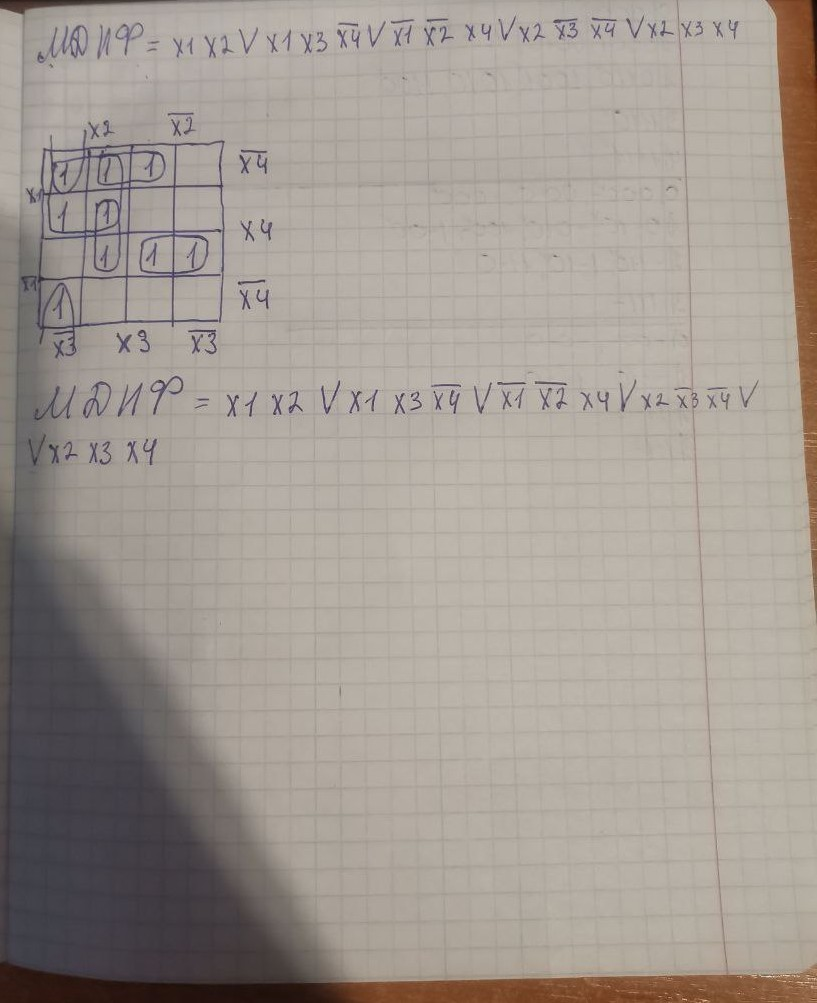 МДНФ = x1 x2 V x1 x3 x̅4̅ V x̅1̅ x̅2̅ x4 V x2 x̅3̅ x̅4̅ V x2 x3 x4
x2 x̅2̅
1 1 1 x̅4̅
x1
1 1
x4
1 1 1
x̅1̅
1 x̅4̅
x̅3̅ x3 x̅3̅
МДНФ = x1 x2 V x1 x3 x̅4̅ V x̅1̅ x̅2̅ x4 V x2 x̅3̅ x̅4̅ V
V x2 x3 x4